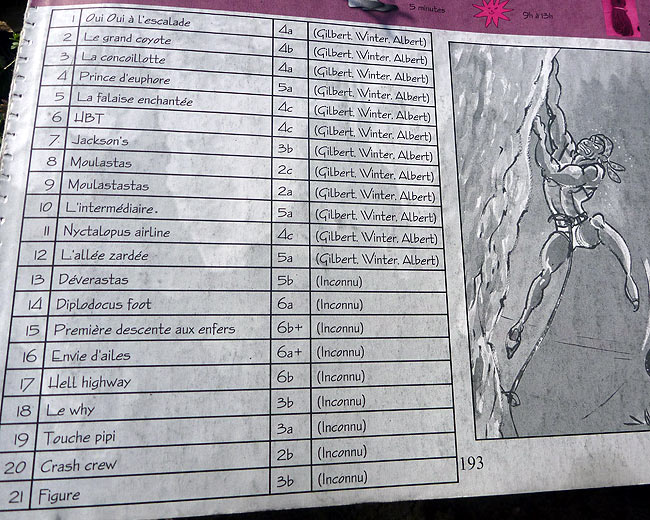 5 minutes
9h à 13h
1 Oui Oui à l'escalade 4a (Gilbert, Winter, Albert)
2 Le grand coyote 4b (Gilbert, Winter, Albert)
3 La concoillotte 4a (Gilbert, Winter, Albert)
4 Prince d'euphore 5a (Gilbert, Winter, Albert)
5 La falaise enchantée 4c (Gilbert, Winter, Albert)
6 HBT 4c (Gilbert, Winter, Albert)
7 Jackson's 3b (Gilbert, Winter, Albert)
8 Moulastas 2c (Gilbert, Winter, Albert)
9 Moulastastas 2a (Gilbert, Winter, Albert)
10 L'intermédiaire. 5a (Gilbert, Winter, Albert)
11 Nyctalopus airline 4c (Gilbert, Winter, Albert)
12 L'allée zardée 5a (Gilbert, Winter, Albert)
13 Déverastas 5b (Inconnu)
14 Diplodocus foot 6a (Inconnu)
15 Première descente aux enfers 6b+ (Inconnu)
16 Envie d'ailes 6a+ (Inconnu)
17 Hell highway 6b (Inconnu)
18 Le why 3b (Inconnu)
19 Touche pipi 3a (Inconnu)
20 Crash crew 2b (Inconnu)
21 Figure 3b (Inconnu)
193